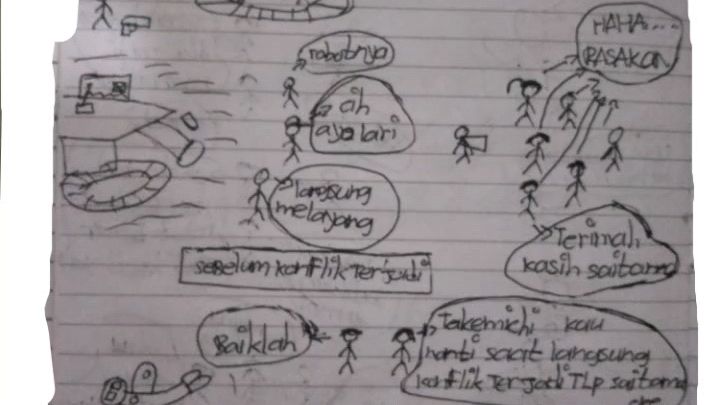 robotnya
HAHA....
RASAKAN
ah
ayo lari
langsung
melayang
Terimah
kasih saitama
sebelum konflik Terjadi
Baiklah
Takemichi kau
nanti saat langsung
konflik Terjadi TLP saitama